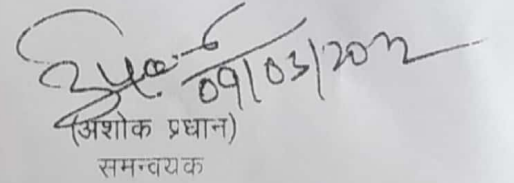 09/03/202
(अशोक प्रधान)
समन्वयक